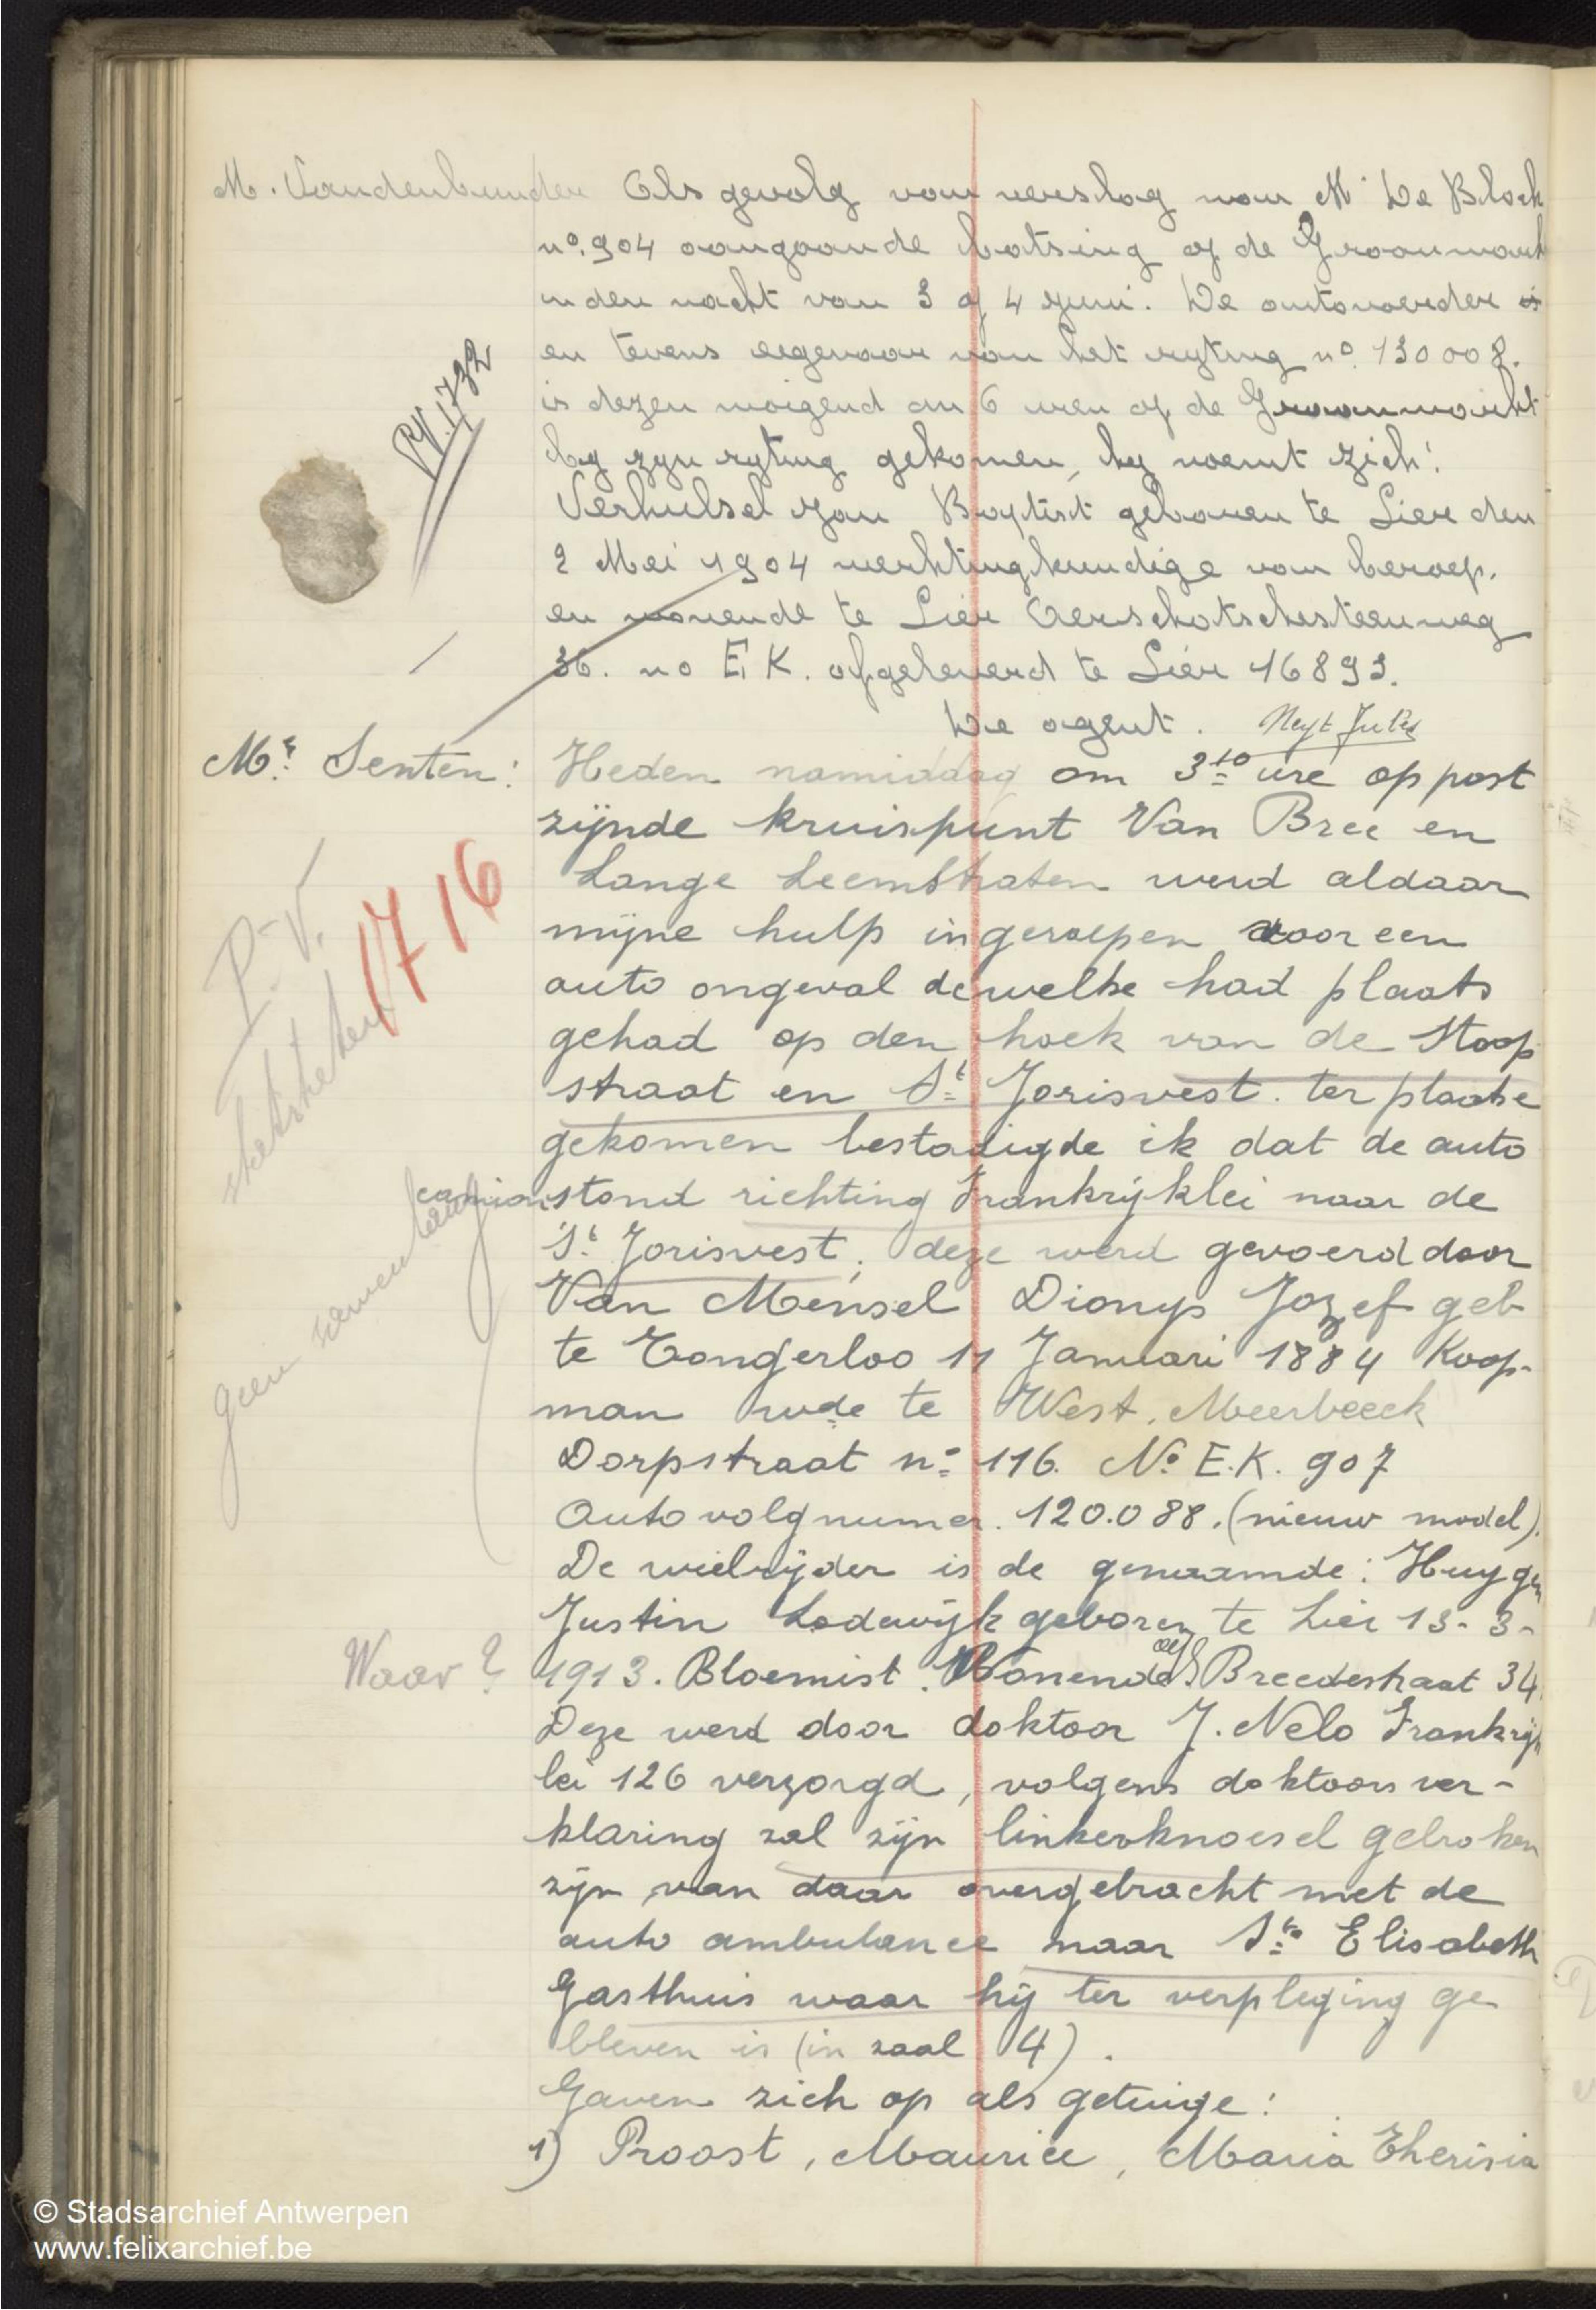 M. Vandenbunder Als gevolg van verslag van M De Block
nº. 904 aangaande botsing op de Graanmarkt
in den nacht van 3 op 4 Juni. De autovoerder
en tevens eigenaar van het rijtuig nº 130008.
is dezen morgend om 6 uren op de Graanmarkt
by zyn rytuig gekomen, hy noemt zich:
Verhulsel Jan Baptist geboren te Lier den
2 Mei 1904 werktuigkundige van beroep.
en wonende te Lier Aerschotschesteenweg
36. no E, K. afgeleverd te Lier 16893.
De agent. Neyt Jules
PV. 1732
Mr. Senten: Heden namiddag om 3 10 ure op post
zijnde kruispunt Van Bree en
Lange Leemstraten werd aldaar
mijne hulp ingeroepen door een
auto ongeval dewelke had plaats
gehad op den hoek van de Stoop
straat en St Jorisvest. ter plaatse
gekomen bestadigde ik dat de auto
camion stond richting Frankrijklei naar de
St Jorisvest; deze werd gevoerd door
Van Mensel Dionys Jozef geb
te Tongerloo 11 Januari 1884 Koop-
man wde te West. Meerbeeck
Dorpstraat nº 116. Nº E.K. 907
Auto volgnumer. 120.088. (nieuw model).
De wielrijder is de genaamde: Huygen
Justin Lodewijk geboren te Lier 13-3-
1913. Bloemist. Wonende Breedestraat 34
Deze werd door doktoor J. Nelo Frankrijk
lei 126 verzorgd, volgens doktoors ver-
klaring zal zijn linkerknoesel gebroken
zijn van daar overgebracht met de
auto ambulance naar Ste Elisabeth
Gasthuis waar hij ter verpleging ge
bleven is (in zaal 4).
Gaven zich op als getuige:
1) Proost, Maurice, Maria Therisia
P.V. 1716
geen
Waar?
© Stadsarchief Antwerpen
www.felixarchief.be